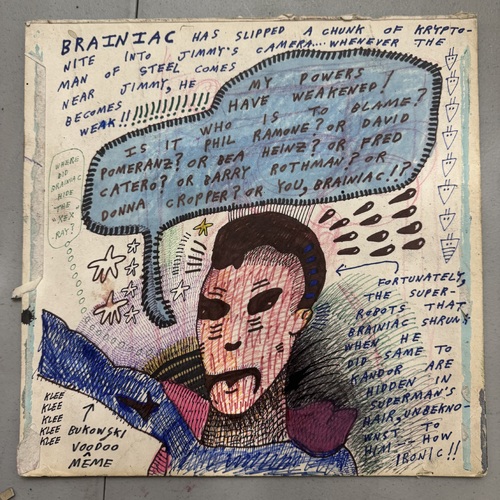 BRAINIAC HAS SLIPPED A CHUNK OF KRYPTO-
NITE INTO JIMMY'S CAMERA.... WHENEVER THE
MAN OF STEEL COMES
NEAR JIMMY, HE
BECOMES
WEAK!!
MY POWERS
HAVE WEAKENED!
WHO IS TO BLAME?
IS IT PHIL RAMONE? OR DAVID
POMERANZ? OR BEA HEINZ? OR FRED
CATERO? OR BARRY ROTHMAN? OR
DONNA CROPPER? OR YOU, BRAINIAC!?
WHERE
DID
BRAINIAC
HIDE
THE
"KEX
RAY?
FORTUNATELY,
THE SUPER-
ROBOTS THAT
BRAINIAC SHRUNK
WHEN HE
DID SAME TO
KANDOR ARE
HIDDEN IN
SUPERMAN'S
HAIR, UNBEKNO-
WNST TO
HIM — HOW
IRONIC!!
KLEE
KLEE
KLEE
KLEE
KLEE
BUKOWSKI
VOODOO
MÊME